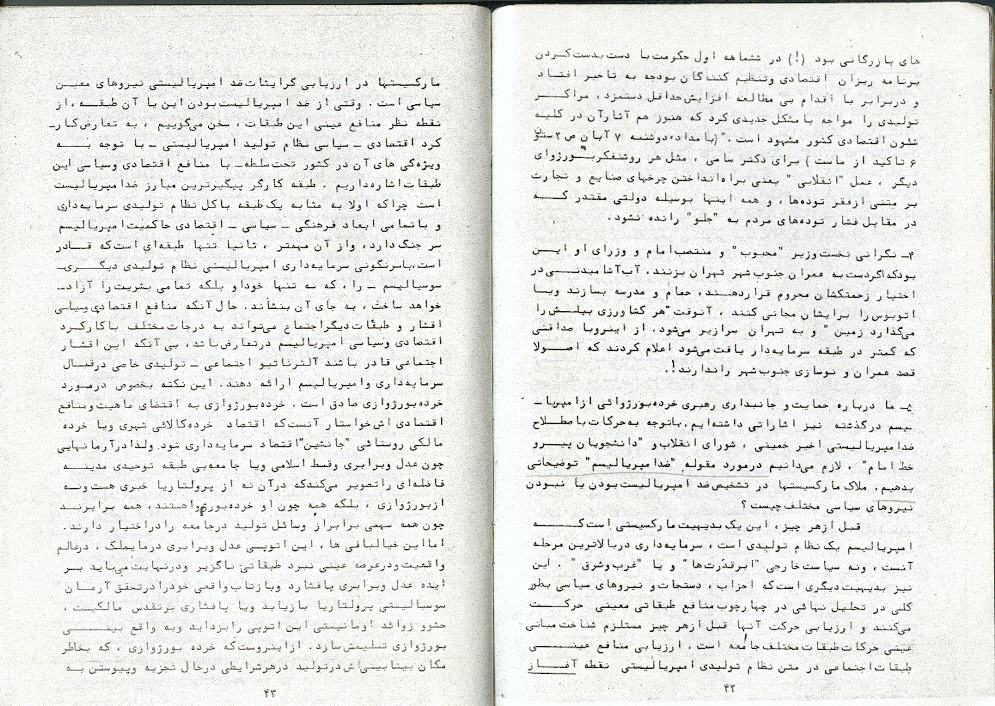 های بازرگانی بود (!) در ششماهه اول حکومت با دست بدست کردن
برنامه ریزان اقتصادی وتنظیم کنندگان بودجه به تاخیر افتاد
و دربرابر با اقدام بی مطالعه افزایش حداقل دستمزد، مراکز
تولیدی را مواجه با مشکل جدیدی کرد که هنوز هم آثار آن در کلیه
شئون اقتصادی کشور مشهود است ." (بامداد، دوشنبه ۷ آبان ص ۲ ستو
۶ تاکید از ماست ) برای دکتر سامی ، مثل هر روشنفکر بورژوای
دیگر ، عمل "انقلابی " یعنی براه انداختن چرخهای صنایع و تجارت
بر متنی از فقر توده‌ها ، و همه اینها بوسیله دولتی مقتدر که
در مقابل فشار توده‌های مردم به "جلو" رانده نشود.
۴ـ نگرانی نخست وزیر "محبوب" و منتصب امام و وزرای او این
بود که اگر دست به عمران جنوب شهر تهران بزنند. آب آشامیدنی در
اختیار زحمتکشان محروم قرار دهند، حمام و مدرسه بسازند ویا
اتوبوس را برایشان مجانی کنند ، آنوقت "هر کشاورزی بیلش را
میگذارد زمین " و به تهران سرازیر می‌شود. از اینرو با صداقتی
که کمتر در طبقه سرمایه‌دار یافت می‌شود اعلام کردند که اصولا
قصد عمران و نوسازی جنوب شهر را ندارند!.
۵ـ ما درباره حمایت و جانبداری رهبری خرده بورژوائی از امپریا‌ـ
لیسم در گذشته نیز اشاراتی داشته‌ایم .با توجه به حرکات باصطلاح
ضد امپریالیستی اخیر خمینی ، شورای انقلاب و "دانشجویان پیرو
خط امام" ، لازم می‌دانیم در مورد مقوله "ضد امپریالیسم" توضیحاتی
بدهیم . ملاک مارکسیستها در تشخیص ضد امپریالیست بودن یا نبودن
نیروهای سیاسی مختلف چیست ؟
قبل از هر چیز ، این یک بدیهیت مارکسیستی است که
امپریالیسم یک نظام تولیدی است ، سرمایه‌داری در بالاترین مرحله
آنست ، ونه سیاست خارجی "ابرقدرت‌ها " و یا "غرب وشرق " . این
نیز بدیهیت دیگری است که احزاب ، دستجات و نیروهای سیاسی بطور
کلی در تحلیل نهائی در چهارچوب منافع طبقاتی معینی حرکت
می‌کنند و ارزیابی حرکت آنها قبل از هر چیز مستلزم شناخت مبانی
عینی حرکات طبقات مختلف جامعه است . ارزیابی منافع عینی
طبقات اجتماعی در متن نظام تولیدی امپریالیستی نقطه آغاز
۴۲
مارکسیستها در ارزیابی گرایشات ضد امپریالیستی نیروهای معین
سیاسی است . وقتی از ضد امپریالیست بودن این یا آن طبقه ، از
نقطه نظر منافع عینی این طبقات ، سخن می‌گوییم ، به تعارض کارـ
کرد اقتصادی ـ سیاسی نظام تولید امپریالیستی ـ با توجه به
ویژه‌گی های آن در کشور تحت سلطه ـ با منافع اقتصادی وسیاسی این
طبقات اشاره داریم . طبقه کارگر پیگیرترین مبارز ضد امپریالیست
است چرا که اولا به مثابه یک طبقه با کل نظام تولیدی سرمایه‌داری
و با تمامی ابعاد فرهنگی ـ سیاسی ـ اقتصادی حاکمیت امپریالیسم
سر جنگ دارد، و از آن مهمتر ، ثانیا تنها طبقه‌ای است که قادر
است ، با سرنگونی سرمایه‌داری امپریالیستی نظام تولیدی دیگری ـ
سوسیالیسم ـ را ، که نه تنها خود او بلکه تمامی بشریت را آزاد
خواهد ساخت ، به جای آن بنشاند. حال آنکه منافع اقتصادی وسیاسی
اقشار و طبقات دیگر اجتماع می‌تواند به درجات مختلف با کارکرد
اقتصادی وسیاسی امپریالیسم در تعارض باشد، بی آنکه این اقشار
اجتماعی قادر باشند آلترناتیو اجتماعی ـ تولیدی خاصی در قبال
سرمایه‌داری و امپریالیسم ارائه دهند. این نکته بخصوص در مورد
خرده بورژوازی صادق است . خرده بورژوازی به اقتضای ماهیت ومنافع
اقتصادی اش خواستار آنست که اقتصاد خرده کالائی شهری ویا خرده
مالکی روستائی "جانشین" اقتصاد سرمایه‌داری شود. ولذا در آرمانهایی
چون عدل وبرابری وقسط اسلامی ویا جامعه‌ی بی طبقه توحیدی مدینه
فاضله‌ای را تصویر می‌کند که در آن نه از پرولتاریا خبری هست ونه
از بورژوازی ، بلکه همه چون او خرده بورژوا هستند، همه برابرند
چون همه سهمی برابر از وسائل تولید در جامعه را در اختیار دارند.
اما این خیالبافی ها ، این اتوپی عدل وبرابری در مایملک ، در عالم
واقعیت ودر عرصه عینی نبرد طبقاتی ناگزیر ودر نهایت می‌باید بر
ایده عدل وبرابری پافشارد وبازتاب واقعی خود را در تحقق آرمان
سوسیالیستی پرولتاریا بازیابد ویا پافشاری بر تقدس مالکیت ،
حشو و زوائد اومانیستی این اتوپی را بزداید وبه واقع بینی
بورژوازی تسلیمش سازد. از اینروست که خرده بورژوازی ، که بخاطر
مکان بینابینی‌اش در تولید در هر شرایطی در حال تجزیه وپیوستن به
۴۳